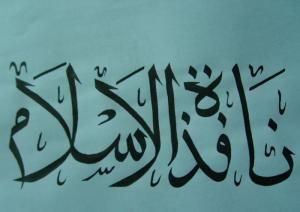 نافذة الاسلام